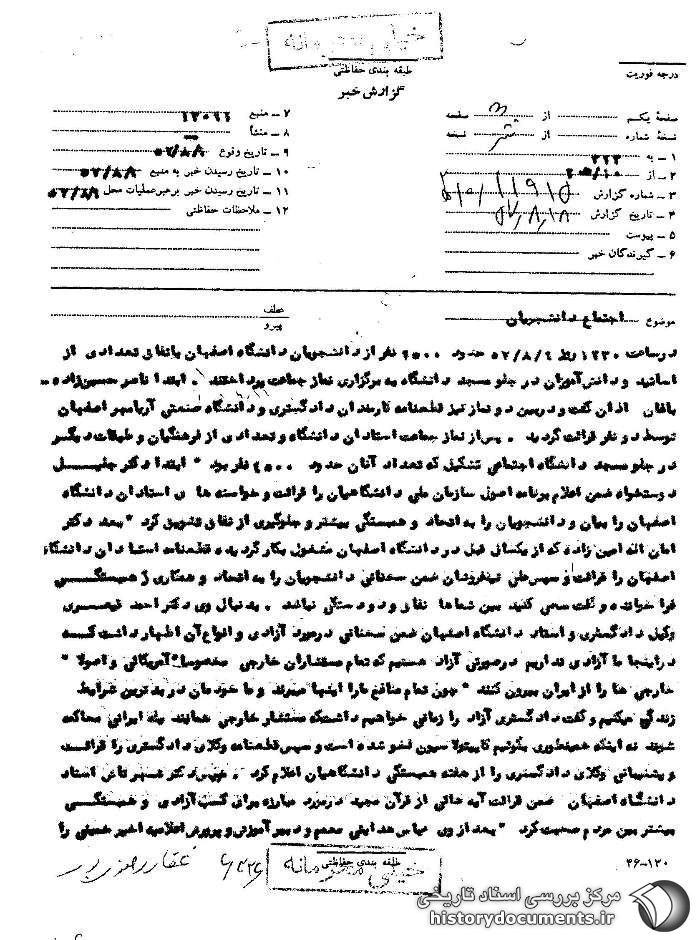 خیلی محرمانه
طبقه بندی حفاظتی
گزارش خبر
درجه فوریت
صفحه یکم از صفحه
نسخه شماره از نسخه
۱ - به ۳۲۲
۲ - از
۳ - شماره گزارش
۴ - تاریخ گزارش
۵ - پیوست
۶ - گیرندگان خبر
۷ - منبع
۸ - منشأ
۹ - تاریخ وقوع ۵۷/۸/۹
۱۰ - تاریخ رسیدن خبر به منبع ۵۷/۸/۹
۱۱ - تاریخ رسیدن خبر برهبر عملیات محل ۵۷/۸/۹
۱۲ - ملاحظات حفاظتی
موضوع اجتماع دانشجویان
عطف
پیرو
درساعت ۱۲۳۰ روز ۵۷/۸/۹ حدود نفر از دانشجویان دانشگاه اصفهان باتفاق تعدادی از
اساتید و دانش آموزان در جلو مسجد دانشگاه به برگزاری نماز جماعت پرداختند . ابتدا ناصر حسین زاده
باغان اذان گفت و دربین دو نماز نیز قطعنامه کارمندان دادگستری و دانشگاه صنعتی آریامهر اصفهان
توسط دو نفر قرائت گردید . پس از نماز جماعت استادان دانشگاه و تعدادی از فرهنگیان و طبقات دیگر
در جلو مسجد دانشگاه اجتماعی تشکیل که تعداد آنان حدود نفر بود " ابتدا دکتر جلیل
دوستخواه ضمن اعلام برنامه اصول سازمان ملی دانشگاهیان را قرائت و خواسته های استادان دانشگاه
اصفهان را بیان و دانشجویان را به اتحاد و همبستگی بیشتر و جلوگیری از نفاق تشویق کرد " بعد دکتر
امان اله امین زاده که از یکسال قبل در دانشگاه اصفهان مشغول بکار گردیده قطعنامه استادان دانشگاه
اصفهان را قرائت و سپس علی ضمن سخنانی دانشجویان را به اتحاد و همکاری و همبستگی
فرا خوانده و گفت سعی کنید بین شماها نفاق و دودستگی نباشد . به دنبال وی دکتر احمد قیصری
وکیل دادگستری و استاد دانشگاه اصفهان ضمن سخنانی درمورد آزادی و انواع آن اظهار داشت که
دراینجا ما آزادی نداریم درصورتی آزاد هستیم که تمام مستشاران خارجی مخصوصا" آمریکائی و اصولا "
خارجی ها را از ایران بیرون کنند " چون تمام منافع مارا اینها میبرند و ما خودمان در بدترین شرایط
زندگی میکنیم و گفت دادگستری آزاد را زمانی خواهیم داشت که مستشار خارجی همانند یک ایرانی محاکمه
شوند نه اینکه همینطوری بگوئیم کاپیتولاسیون لغو شده است و سپس قطعنامه وکلای دادگستری را قرائت
و پشتیبانی وکلای دادگستری را از هفته همبستگی دانشگاهیان اعلام کرد . سپس دکتر استاد
دانشگاه اصفهان ضمن قرائت آیه هائی از قرآن مجید درمورد مبارزه برای کسب آزادی و همبستگی
بیشتر بین مردم صحبت کرد " بعد از وی عباس هدایتی معمم و دبیر آموزش و پرورش اعلامیه اخیر خمینی را
۴۶-۱۲۰
طبقه بندی حفاظتی
خیلی محرمانه
مرکز بررسی اسناد تاریخی
historydocuments.ir